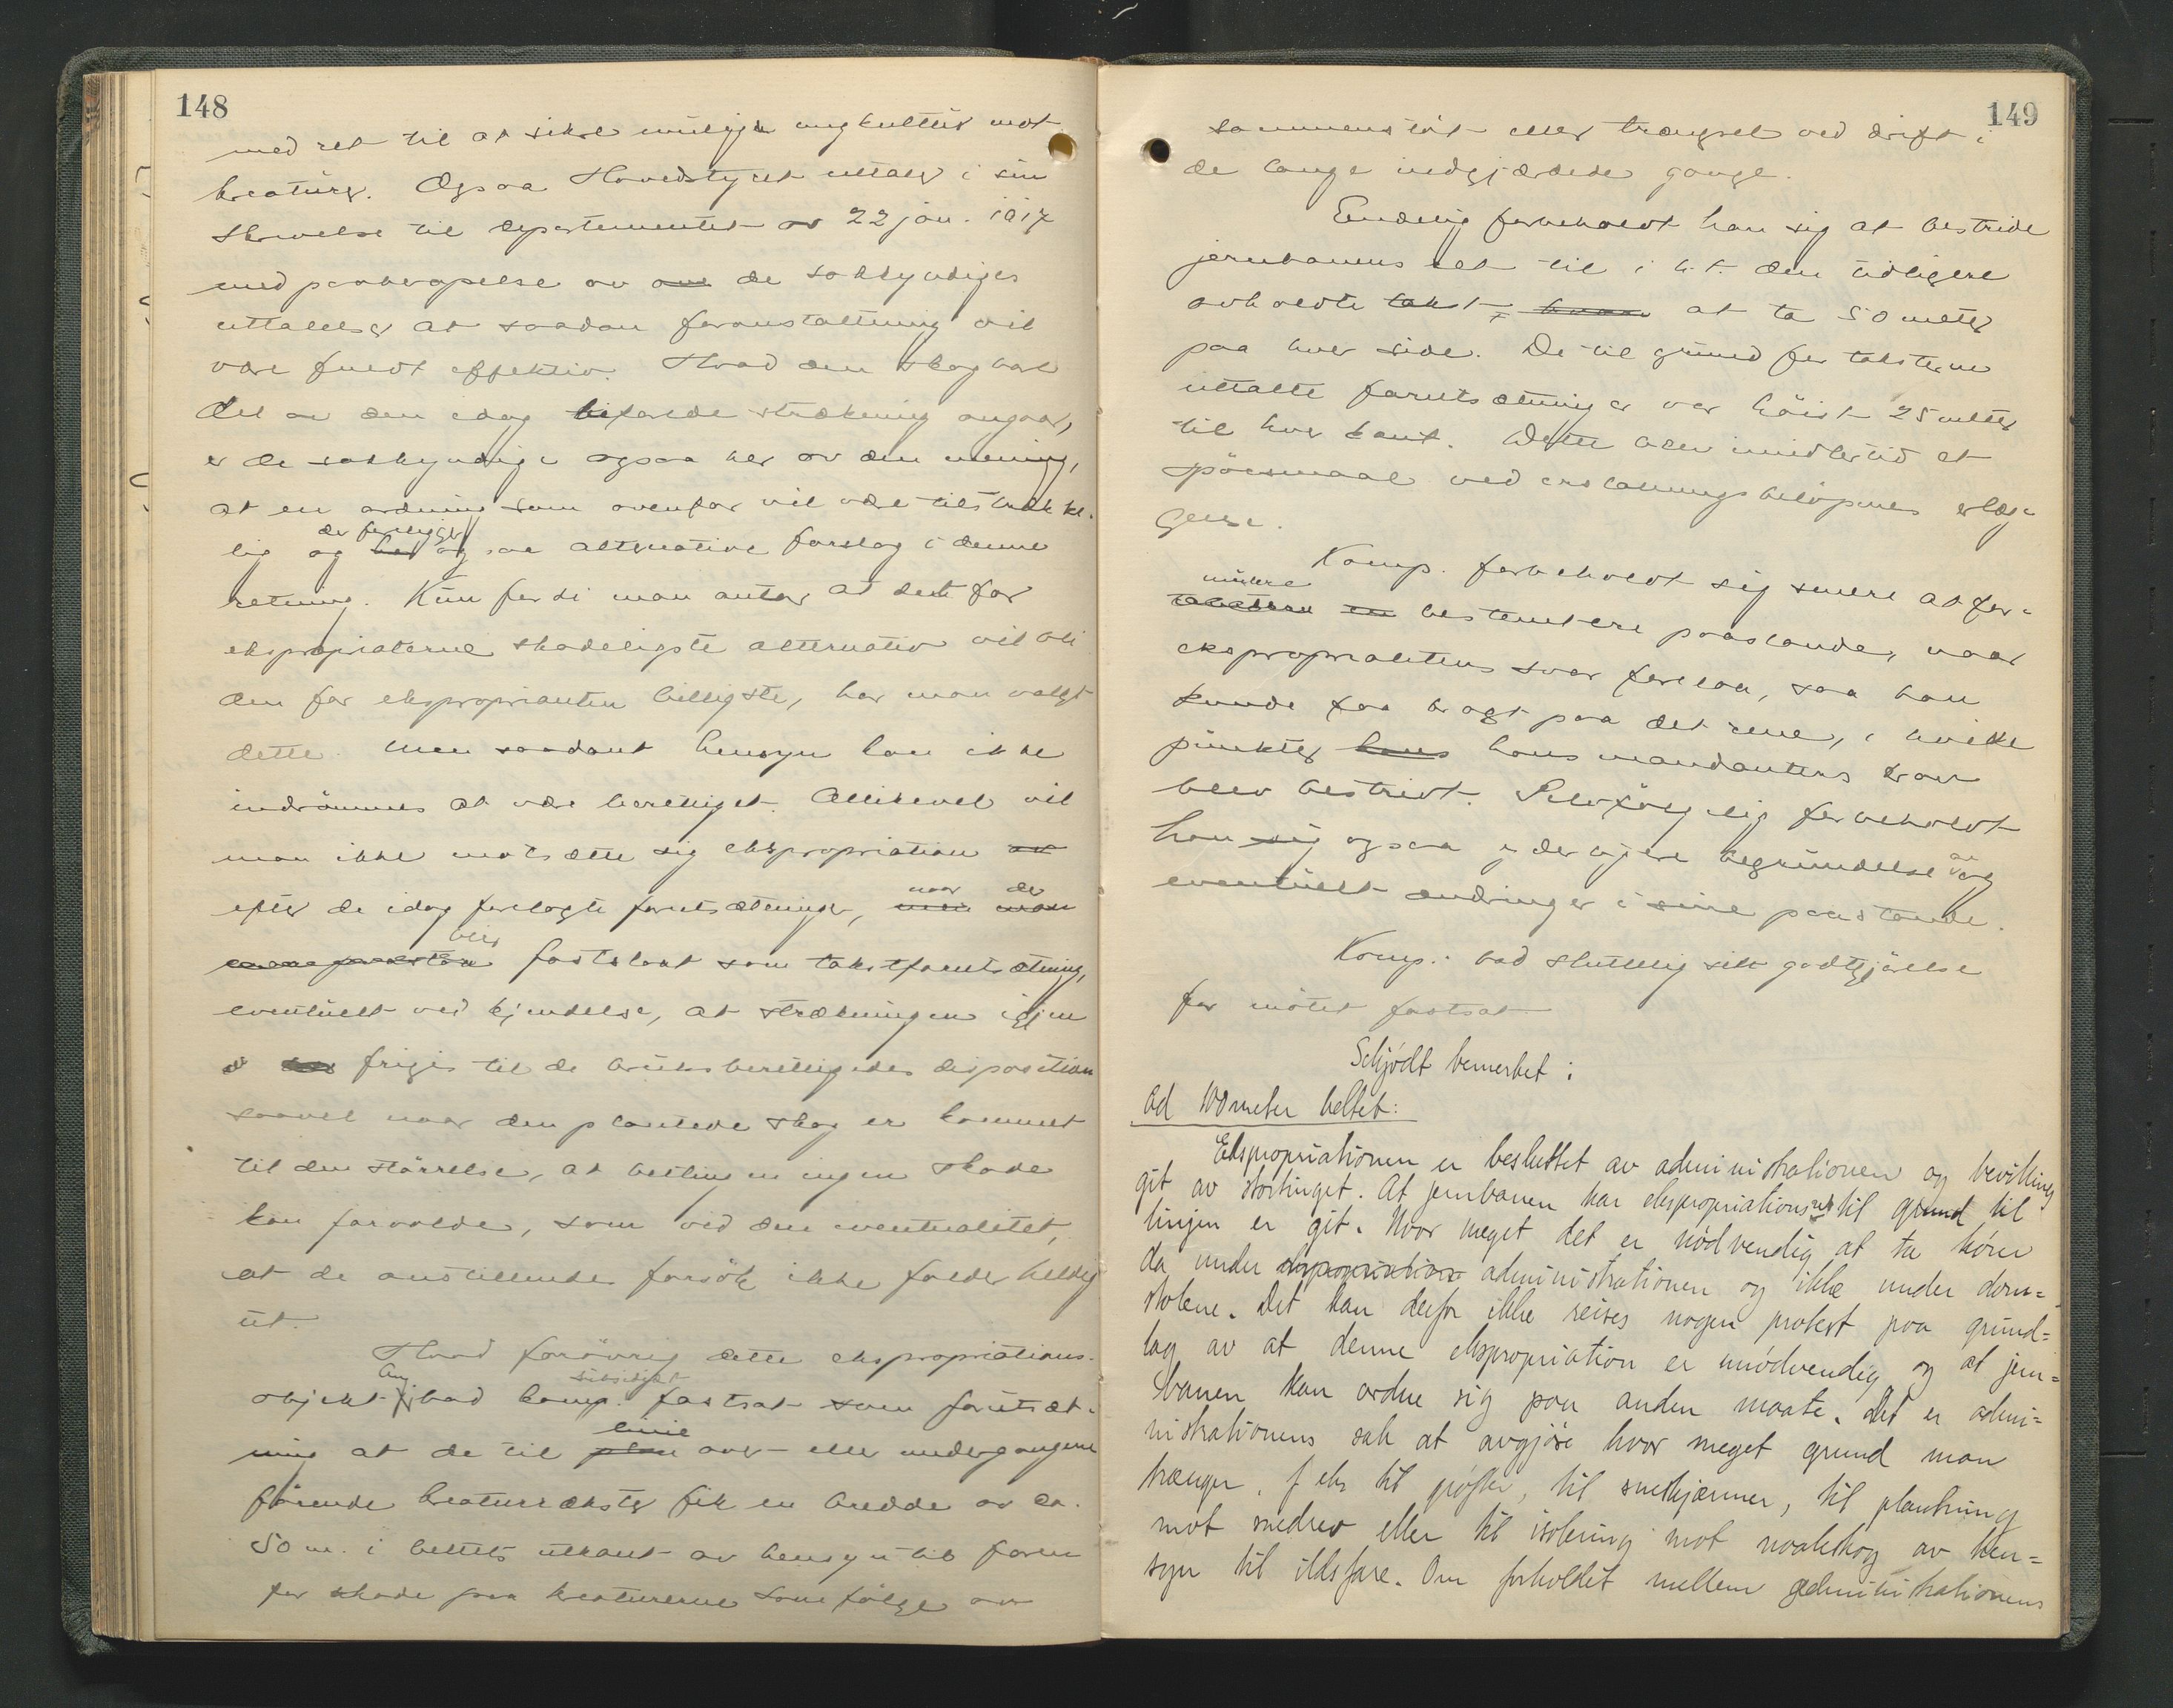 148
med ret til at sikre mulige ungkulturer mot
kreaturer. Ogsaa Hovedstyret uttaler i sin
skrivelse til departementet av 22 jan. 1917
med paaberopelse av de sakkyndiges
uttalelser at saadan foranstaltning vil
være fuldt effektiv. Hvad den skogbare
del av den idag befarede strækning angaar,
er de sakkyndige ogsaa her av den mening,
at en ordning som ovenfor vil være tilstrække-
lig og der foreligger ogsaa alternative forslag i denne
retning. Kun fordi man antar at det for
ekspropriaterne skadeligste alternativ vil bli
den for eksproprianten billigste, har man valgt
dette. Men saadant hensyn kan ikke
indrömmes at være berettiget. Allikevel vil
man ikke motsætte sig ekspropriation
efter de idag forelagte forutsætninger, naar det
blir fastslaat som takstforutsætning,
eventuelt ved kjendelse, at strækningen igjen
frigis til de bruksberettigedes disposition
saavel naar den plantede skog er kommet
til den störrelse, at beitingen ingen skade
kan forvolde, som ved den eventualitet,
at de anstillende forsök ikke falder heldig
ut.
Hvad forövrig dette ekspropriations-
objekt ang. bad komp. subsidiært fastsat som forutsæt-
ning at de til linie over- eller undergangene
förende kreaturrækster fik en bredde av ca.
50 m. i beltets utkant av hensyn til faren
for skade paa kreaturerne som fölge av
149
sammenstöt eller trængsel ved drift i
de lange indgjærdede gange.
Endelig forbeholdt han sig at bestride
jernbanens ret til i h.t. den tidligere
avholdte takst at ta 50 meter
paa hver side. De til grund for taksterne
uttalte forutsætninger var höist 25 meter
til hver kant. Dette blev imidlertid et
spörsmaal ved erstatningsbelöpenes erlæg-
gelse.
Komp. forbeholdt sig senere at for-
mulere bestemtere paastande, naar
ekspropriantens svar forelaa, saa han
kunde faa bragt paa det rene, i hvilke
punkter hans mandanters krav
blev bestridt. Selvfölgelig forbeholdt
han sig ogsaa yderligere begrundelse av og
eventuelt ændringer i sine paastande.
Komp. bad sluttelig sin godtgjörelse
for mötet fastsat
Schjödt bemerket:
Ad 100 meter beltet:
Ekspropriationen er besluttet av administrationen og bevilning
git av stortinget. At jernbanen har ekspropriationsret til grund til
linjen er git. Hvor meget det er nödvendig at ta hörer
da under administrationen og ikke under dom-
stolene. Det kan derfor ikke reises nogen protest paa grund-
lag av at denne ekspropriation er unödvendig og at jern-
banen kan ordne sig paa anden maate. Det er admi-
nistrationens sak at avgjöre hvor meget grund man
trænger, f eks til gröfter, til sneskjærmer, til plantning
mot snedrev eller til isolering mot naaleskog av hen-
syn til ildsfare. Om forholdet mellem administrationens